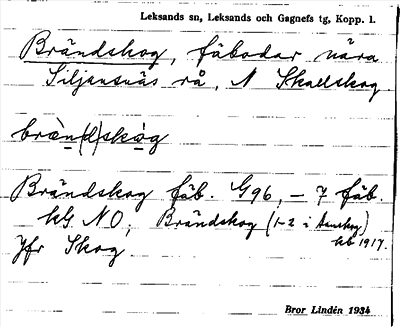 Leksands sn, Leksands och Gagnefs tg, Kopp. l.
Brändskog, fäbodar nära
Siljansnäs rå, N Skallskog.
bràn(d)skò̱g
Brändskog fäb. G96, – 7 fäb.
kG NO; Brändskog (1-2 i
kb 1917.
Jfr Skog.
Bror Lindén 1934